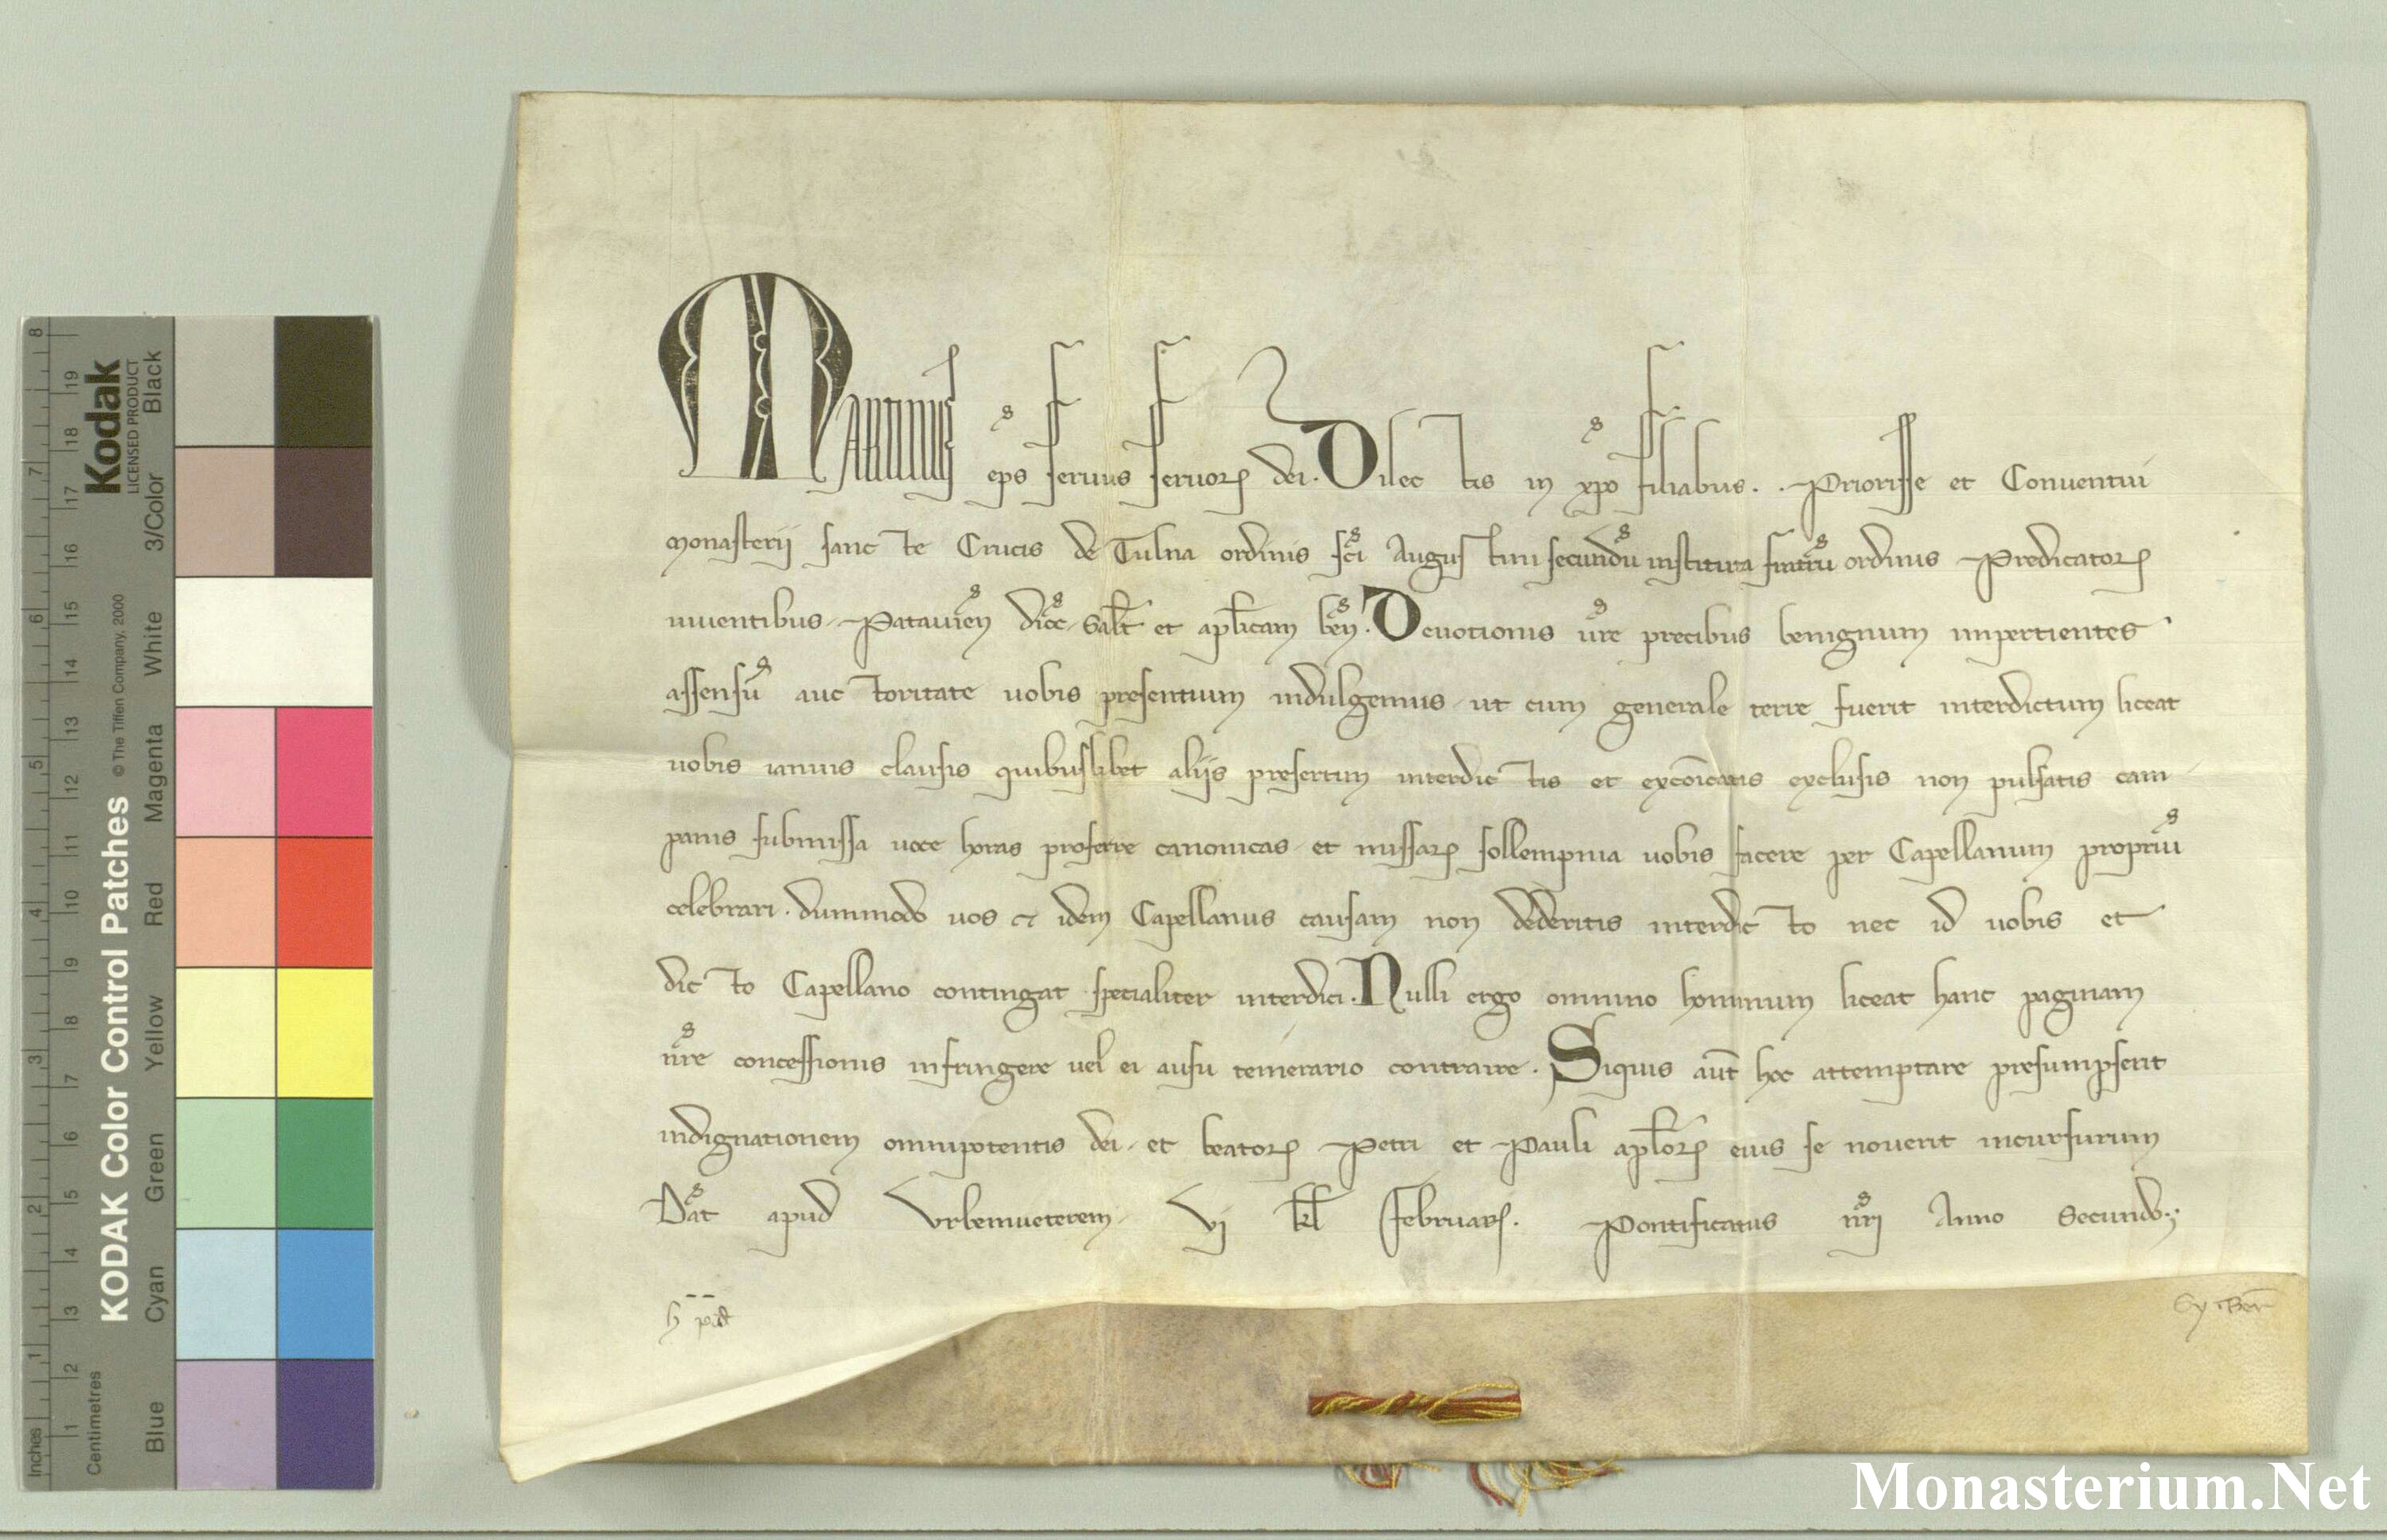 Martinus eps seruus seruoꝝ dei. Dilectis in xpo filiabus. . Priorisse et Conuentui
monasterij sancte Crucis de Tulna ordinis sci Augustini secundu instituta fratru ordinis Predicatoꝝ
uiuentibus, Patauien dioc, salt et aplicam ben. Deuotionis ure precibus benignum impertientes
assensu auctoritate uobis presentium indulgemus, ut cum generale terre fuerit interdictum liceat
uobis ianuis clausis quibuslibet alijs presertim interdictis et excoicatis exclusis non pulsatis cam
panis submissa uoce horas proferre canonicas et missaꝝ sollempnia uobis facere per Capellanum propriu
celebrari. dummodo uos et idem Capellanus causam non dederitis interdicto nec id uobis et
dicto Capellano contingat specialiter interdici. Nulli ergo omnino hominum liceat hanc paginam
nre concessionis infringere uel ei ausu temerario contraire. Siquis aut hoc attemptare presumpserit
indignationem omnipotentis dei, et beatoꝝ Petri et Pauli aploꝝ eius se nouerit incursurum
Dat apud Vrbemueterem, vj kl Februaꝝ. Pontificatus nri Anno Secundo.
KODAK Color Control Patches
© The Tiffen Company, 2000
Kodak
LICENSED PRODUCT
Inches 1 2 3 4 5 6 7 8
Centimetres 1 2 3 4 5 6 7 8 9 10 11 12 13 14 15 16 17 18 19
Blue Cyan Green Yellow Red Magenta White 3/Color Black
Monasterium.Net